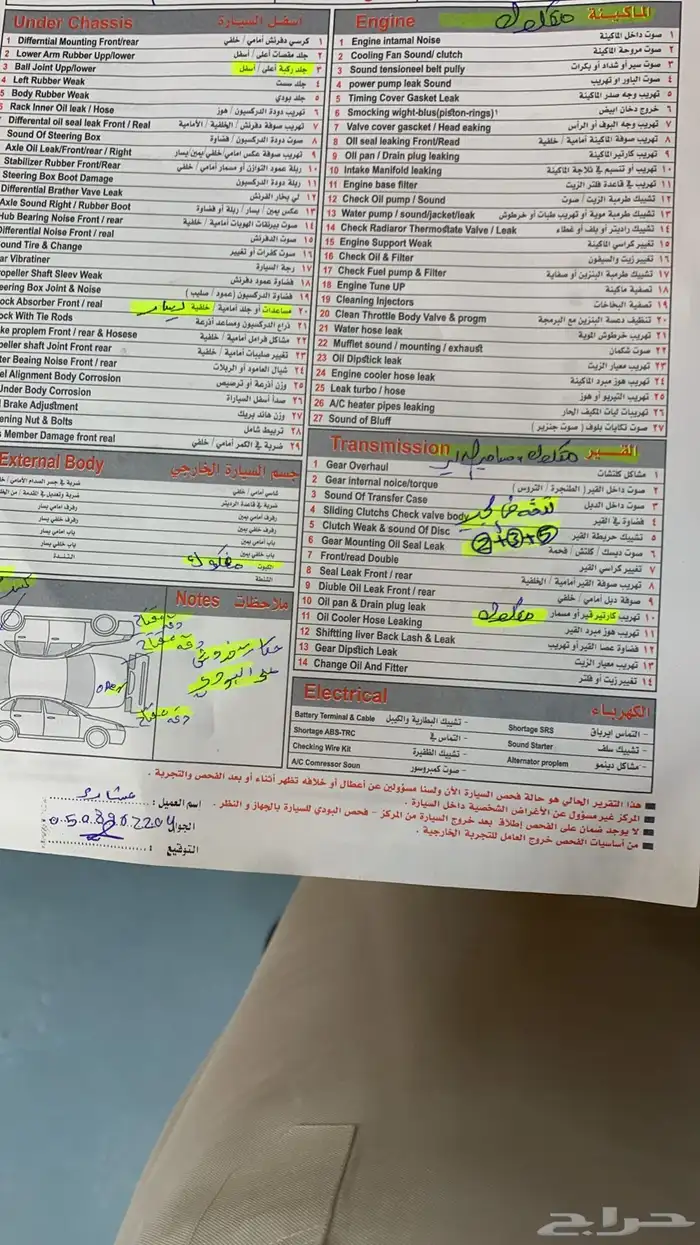 Under Chassis أسفل السيارة
1 Differntial Mounting Front/rear كرسي دفرنش أمامي / خلفي ١
2 Lower Arm Rubber Upp/lower جلد مقصات أعلى / أسفل ٢
3 Ball Joint Upp/lower جلد ركبة أعلى / أسفل ٣
4 Left Rubber Weak جلد ست ٤
5 Body Rubber Weak جلد بودي ٥
Rack Inner Oil leak / Hose تهريب دودة الدركسيون / هوز ٦
Differental oil seal leak Front / Real تهريب صوفة دفرنش / الخلفية / الأمامية ٧
Sound Of Steering Box صوت دودة الدركسيون / فضاوة ٨
Axle Oil Leak/Front/reare / Right تهريب صوفة عكس امامي/خلفي يمين/يسار ٩
Stabilizer Rubber Front/Rear ربلة عمود التوازن أو مسمار أمامي / خلفي ١٠
Steering Box Boot Damage ربلة دودة الدركسيون ١١
Differential Brather Vave Leak لي بخار الفرنش ١٢
Axle Sound Right / Rubber Boot عكس يمين / يسار / ربلة أو فضاوة ١٣
Hub Bearing Noise Front / rear صوت بيرنقات الهوبات أمامية / خلفية ١٤
Differential Noise Front / real صوت الدفرنش ١٥
ound Tire & Change صوت كفرات أو تغيير ١٦
ar Vibratiner رجة السيارة ١٧
opeller Shaft Sleev Weak فضاوة عمود دفرنش ١٨
eering Box Joint & Noise فضاوة الدركسيون (عمود / صليب) ١٩
ock Absorber Front / real مساعدات أو جلد أمامية / خلفية يسار ٢٠
ock With Tie Rods ذراع الدركسيون ومساعد أذرعة ٢١
ke proplem Front / rear & Hosese مشاكل فرامل أمامية / خلفية ٢٢
peller shaft Joint Front rear تغيير صليبات أمامية / خلفية ٢٣
ter Beaing Noise Front / rear شيال العامود أو الربلات ٢٤
el Alignment Body Corrosion وزن أذرعة أو ترصيص ٢٥
Under Body Corrosion صدأ أسفل السيارة ٢٦
Brake Adjustment وزن هاند بريك ٢٧
ening Nut & Bolts تربيط شامل ٢٨
s Member Damage front real ضربة في الكمر أمامي / خلفي ٢٩
External Body جسم السيارة الخارجي
شاصي أمامي / خلفي
ضربة في قاعدة الرديتر
رفرف أمامي يمين رفرف أمامي يسار
رفرف خلفي يمين رفرف خلفي يسار
باب أمامي يمين باب أمامي يسار
باب خلفي يمين باب خلفي يسار
الكبوت مفكوك
الشنطة
Notes ملاحظات
على البودي
open
Engine مفكوك الماكينة
1 Engine intamal Noise صوت داخل الماكينة ١
2 Cooling Fan Sound/ clutch صوت مروحة الماكينة ٢
3 Sound tensioneel belt pully صوت سير أو شداد أو بكرات ٣
4 power pump leak Sound صوت الباور أو تهريب ٤
5 Timing Cover Gasket Leak تهريب وجه صدر الماكينة ٥
6 Smocking wight-blus(piston-rings) خروج دخان ابيض ٦
7 Valve cover gascket / Head eaking تهريب وجه البوف أو الرأس ٧
8 Oil seal leaking Front/Read تهريب صوفة الماكينة أمامية / خلفية ٨
9 Oil pan / Drain plug leaking تهريب كارتير الماكينة ٩
10 Intake Manifold leaking تهريب أو تنسيم في ثلاجة الماكينة ١٠
11 Engine base filter تهريب في قاعدة فلتر الزيت ١١
12 Check Oil pump / Sound تشييك طرمبة الزيت / صوت ١٢
13 Water pump / sound/jacket/leak تشييك طرمبة موية أو تهريب طبات أو خرطوش ١٣
14 Check Radiaror Thermostate Valve / Leak تشييك راديتر أو بلف أو غطاء ١٤
15 Engine Support Weak تغيير كراسي الماكينة ١٥
16 Check Oil & Filter تغيير زيت والسيفون ١٦
17 Check Fuel pump & Filter تشييك طرمبة البنزين أو صفاية ١٧
18 Engine Tune UP تصفية ماكينة ١٨
19 Cleaning Injectors تصفية البخاخات ١٩
20 Clean Throttle Body Valve & progm تنظيف دعسة البنزين مع البرمجة ٢٠
21 Water hose leak تهريب خرطوش الموية ٢١
22 Mufflet sound / mounting / exhaust صوت شكمان ٢٢
23 Oil Dipstick leak تهريب معيار الزيت ٢٣
24 Engine cooler hose leak تهريب هوز مبرد الماكينة ٢٤
25 Leak turbo / hose تهريب التيربو أو هوز ٢٥
26 A/C heater pipes leaking تهريبات ليات المكيف الحار ٢٦
27 Sound of Bluff صوت تكايات بلوف (صوت جنزير) ٢٧
Transmission القير
1 Gear Overhaul مشاكل كلتشات ١
2 Gear internal noice/torque صوت داخل القير (الطنجرة / التروس) ٢
3 Sound Of Transfer Case صوت داخل الدبل ٣
4 Sliding Clutchs Check valve body فضاوة في القير ٤
5 Clutch Weak & sound Of Disc ②+③+⑤ تشييك خريطة القير ٥
6 Gear Mounting Oil Seal Leak صوت ديسك / كلتش / فحمة ٦
7 Front/read Double تغيير كراسي القير ٧
8 Seal Leak Front / rear تهريب صوفة القير أمامية / الخلفية ٨
9 Diuble Oil Leak Front / rear صوفة دبل أمامي / خلفي ٩
10 Oil pan & Drain plug leak مفكوك تهريب كارتير قير أو مسمار ١٠
11 Oil Cooler Hose Leaking تهريب هوز مبرد القير ١١
12 Shiftting liver Back Lash & Leak فضاوة عصا القير أو تهريب ١٢
13 Gear Dipstich Leak تهريب معيار الزيت ١٣
14 Change Oil And Fitter تغيير زيت أو فلتر ١٤
Electrical الكهرباء
Battery Terminal & Cable تشييك البطارية والكيبل - Shortage SRS التماس ايرباق -
Shortage ABS-TRC التماس في - Sound Starter تشييك سلف -
Checking Wire Kit تشييك الظفيرة - Alternator proplem مشاكل دينمو -
A/C Comressor Soun صوت كمبروسور -
هذا التقرير الحالي هو حالة فحص السيارة الآن ولسنا مسؤولين عن أعطال أو خلافه تظهر أثناء أو بعد الفحص والتجربة .
المركز غير مسؤول عن الأغراض الشخصية داخل السيارة .
لا يوجد ضمان على الفحص إطلاقا بعد خروج السيارة من المركز - فحص البودي للسيارة بالجهاز و النظر .
من أساسيات الفحص خروج العامل للتجربة الخارجية .
اسم العميل :
الجوال
التوقيع :
حراج